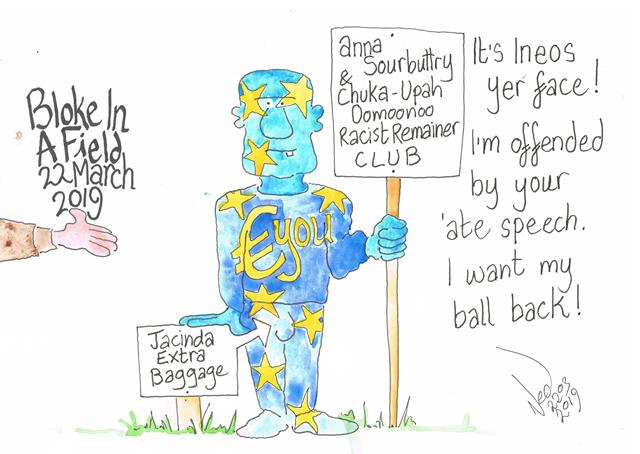 Bloke In
A Field
22 March
2019
anna
Sourbuttry
& 
Chuka-Upah
Oomoonoo
Racist Remainer
CLUB
It's Ineos
yer face!
I'm offended
by your
'ate speech.
I want my
ball back!
€you
Jacinda
Extra
Baggage
2203
2019